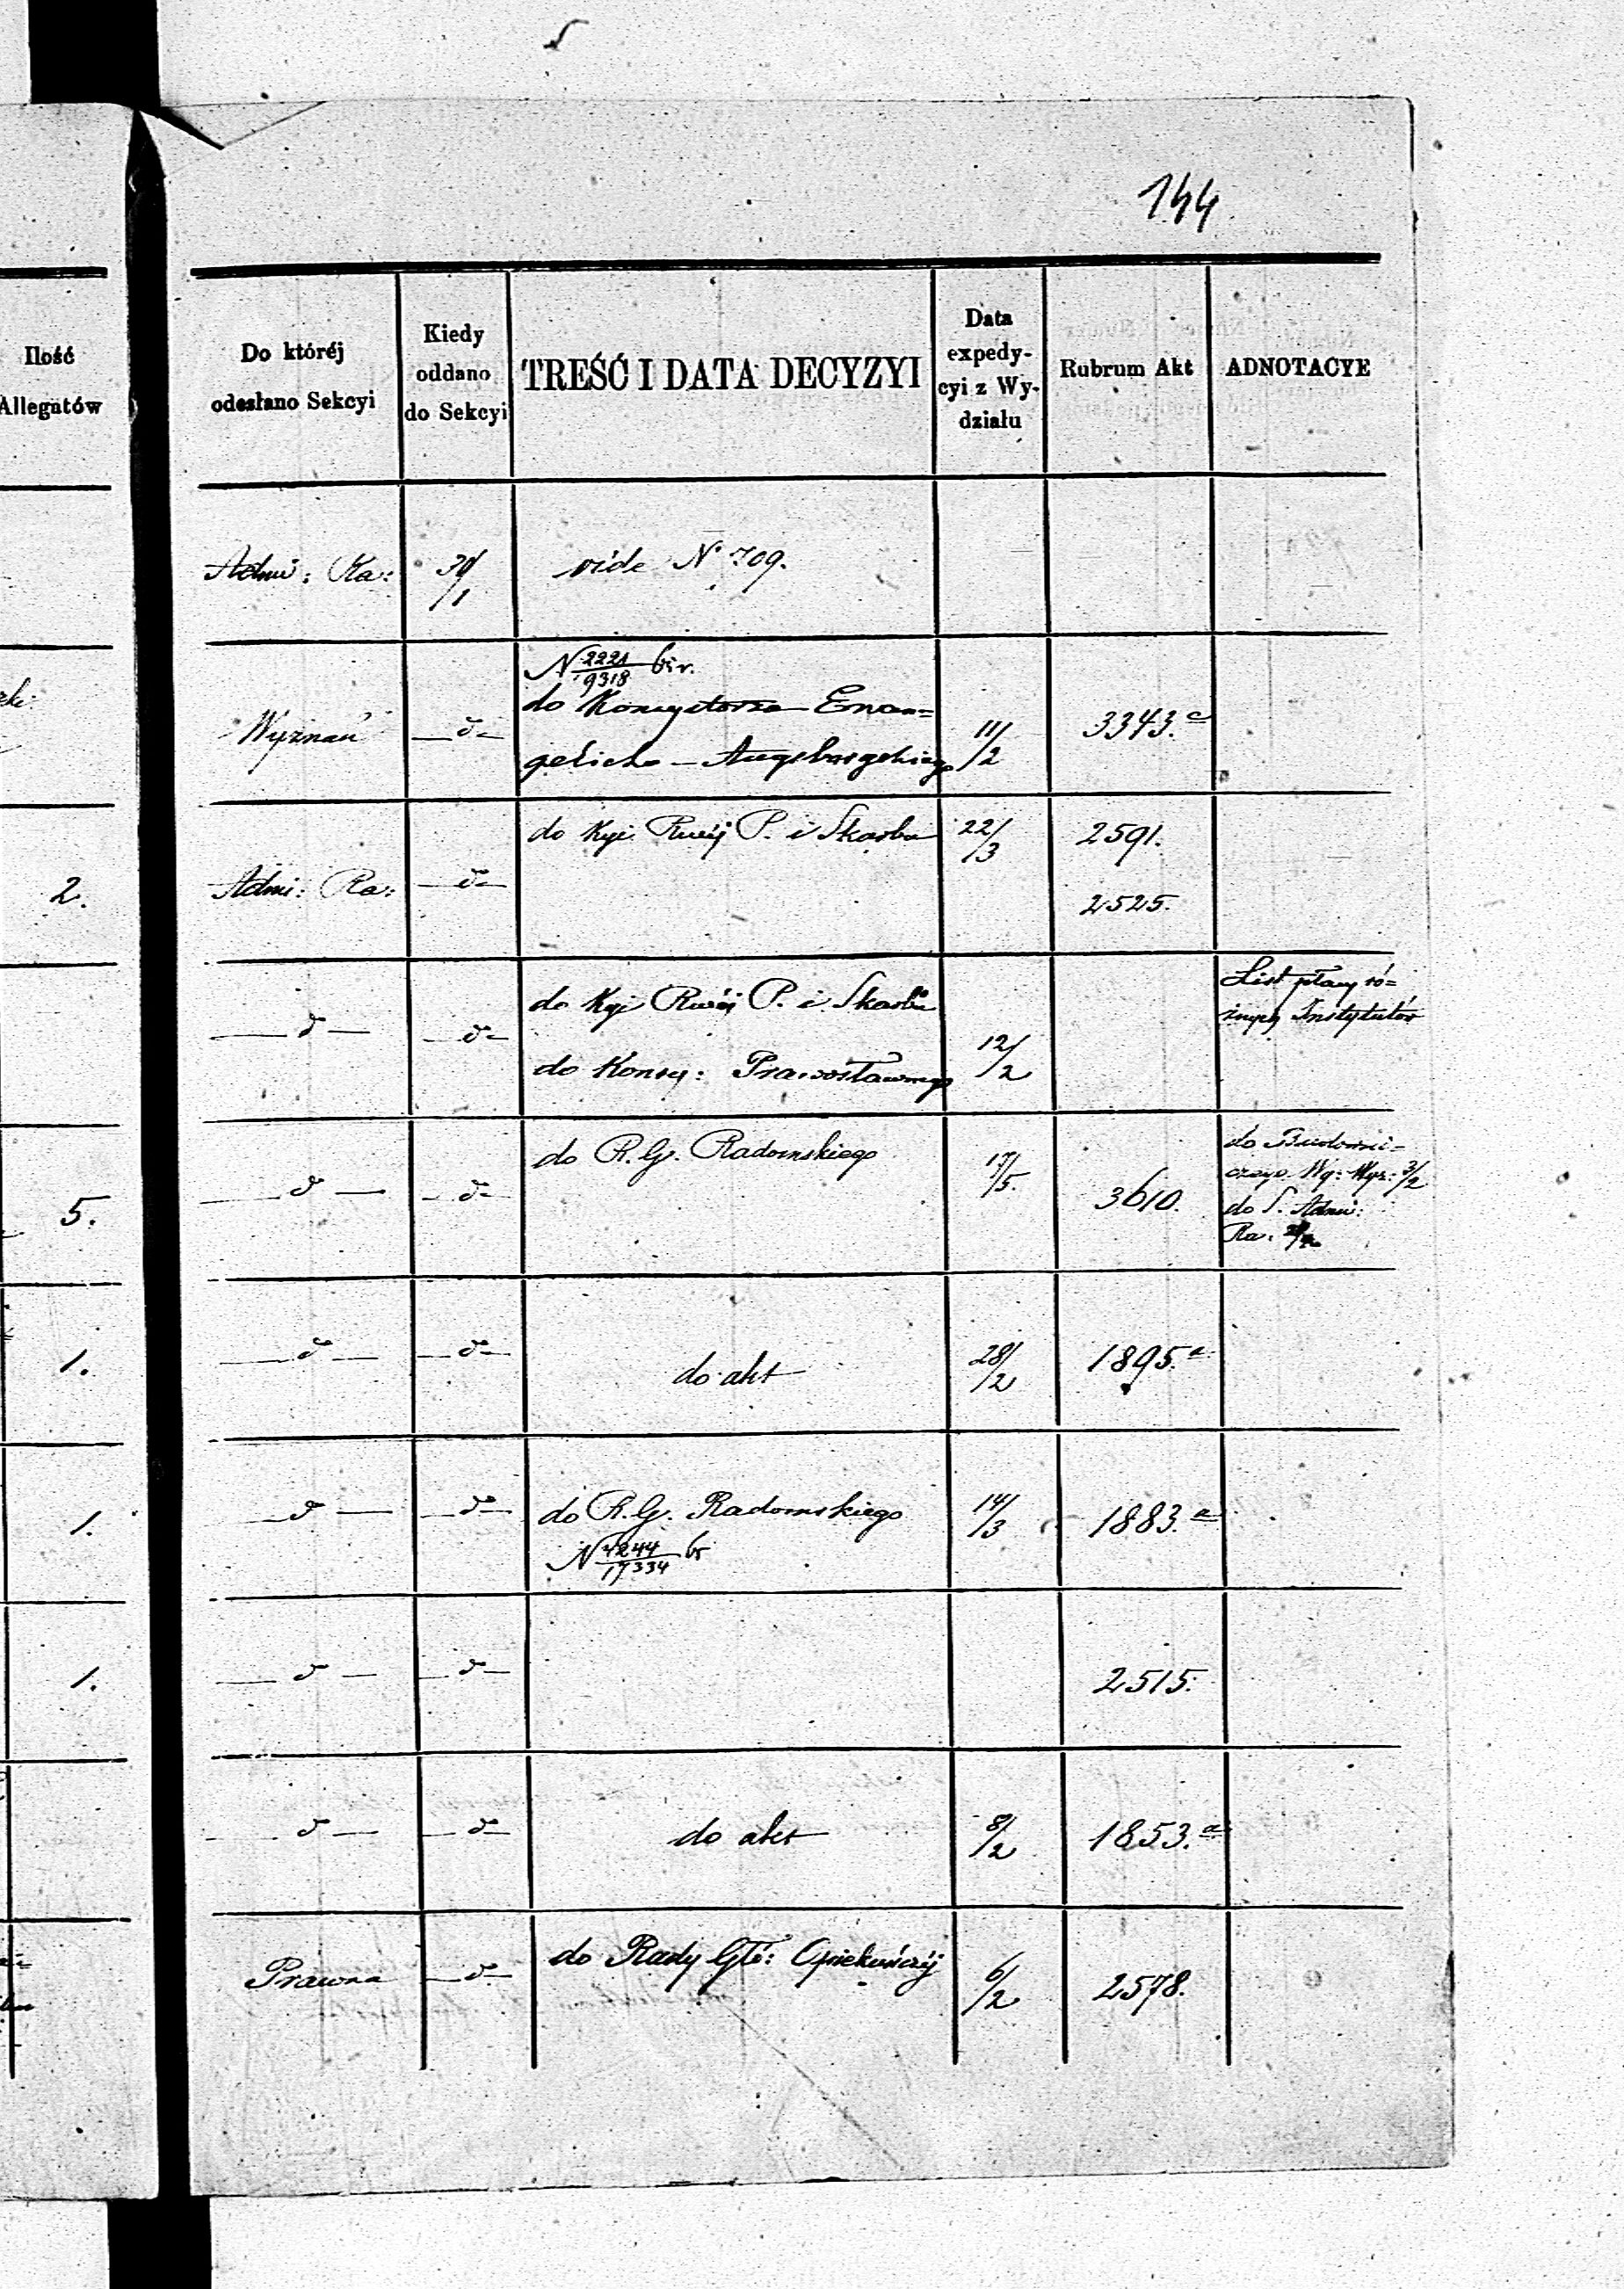 144
Ilość
Allegatów
Do któréj
odesłano Sekcyi
Kiedy
oddano
do Sekcyi
TREŚĆ I DATA DECYZYI
Data
expedy-
cyi z Wy-
działu
Rubrum Akt
ADNOTACYE
Admi: Ra:
30/1
vide N° 709.
Wyznań
do
N 2221/9318 br.
do Konsystorza Ewan=
gelicko - Augsburgskiego
11/2
3343. c
2.
Admi: Ra:
do
do Kyi Rwéj P. i Skarbu
22/3
2591.
2525.
do
do
do Kyi Rwéj P. i Skarbu
do Konsy: Prawosławnego
12/2
List płacy ró=
żnych Instytutów
5.
do
do
do R. G. Radomskiego
17/5.
3610.
do Budowni=
czego Wy: Wyz: 3/2
do S. Admi:
Ra:
1.
do
do
do akt
28/2
1895. a
1.
do
do
do R. G. Radomskiego
N 4244/17334 br
14/3
1883. a
1.
do
do
2515.
do
do
do akt
8/2
1853. a
Prawna
do
do Rady Głó: Opiekuńczéj
6/2
2578.